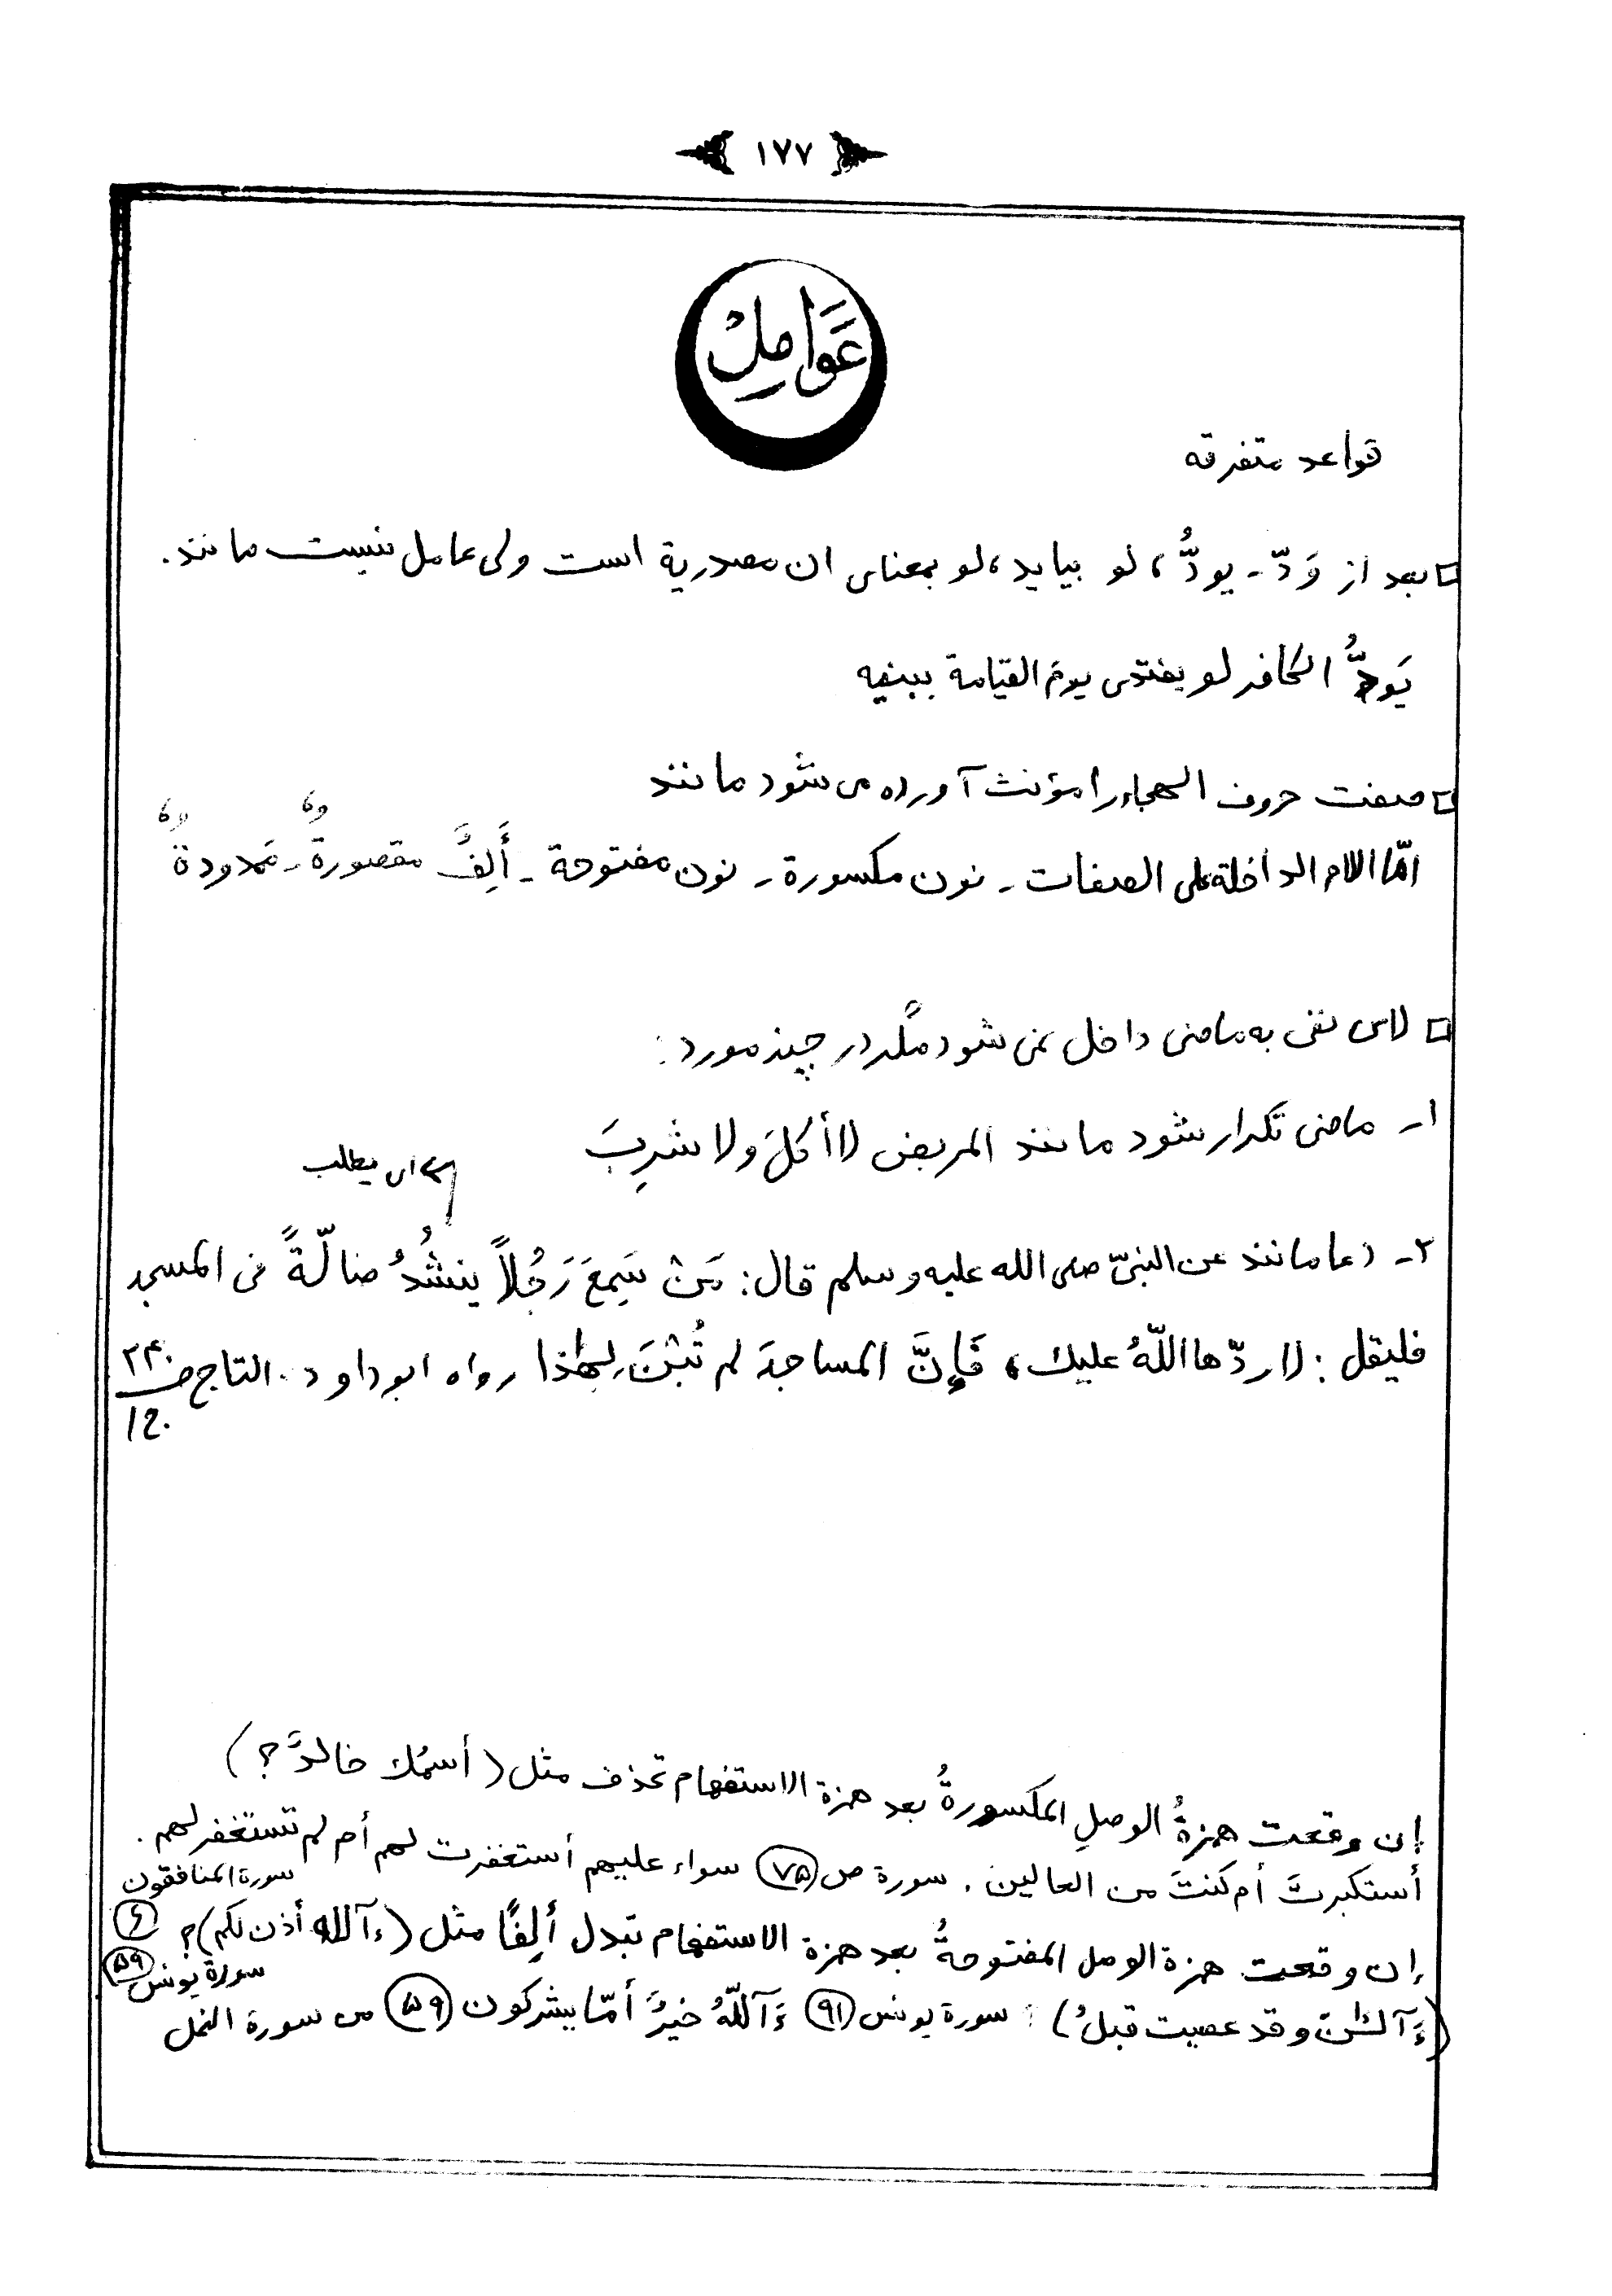 ١٧٧
عَوَامِلْ
قواعد متفرقه
بعد از وَدّ - يودُّ، لو بيايد، لو بمعناى ان مصدرية است ولى عامل نيست مانند.
يَودُّ الكافر لو يفتدى يومَ القيامة ببنيه
صفت حروف الهجاء را مؤنث آورده مى شود مانند
امّا اللام الداخلة على الصفات - نون مكسورة - نون مفتوحة - أَلِفٌ مقصورةٌ - ممدودةٌ
لاى نفى به ماضى داخل نمى شود مگر در چند مورد:
١- ماضى تكرار شود مانند المريض لا أكلَ ولا شرِبَ
اى يطلب
٢- دعا مانند عن النبىّ صلى الله عليه وسلم قال: مَنْ سَمِعَ رَجُلاً ينشُدُ ضالّةً فى المسجد
فليقل: لا ردّها اللّهُ عليك، فَإِنَّ المساجدَ لم تُبْنَ لِهٰذا رواه ابو داود. التاج ص ٢٤٠
ج ١
إن وقعت همزةُ الوصلِ المكسورةُ بعد همزة الاستفهام تحذف مثل (أسمُك خالدٌ؟)
أستكبرتَ أم كنتَ من العالين. سورة ص (٧٥) سواء عليهم أستغفرت لهم أم لم تستغفر لهم.
سورة المنافقون (٦)
إن وقعت همزة الوصل المفتوحةُ بعد همزة الاستفهام تبدل أَلِفًا مثل (ءآلله أذن لكم)؟
سورة يونس (٥٩)
(ءَآلـٰٔنَ وقد عصيت قبلُ) : سورة يونس (٩١) ءَآللّهُ خيرٌ أمّا يشركون (٥٩) من سورة النمل